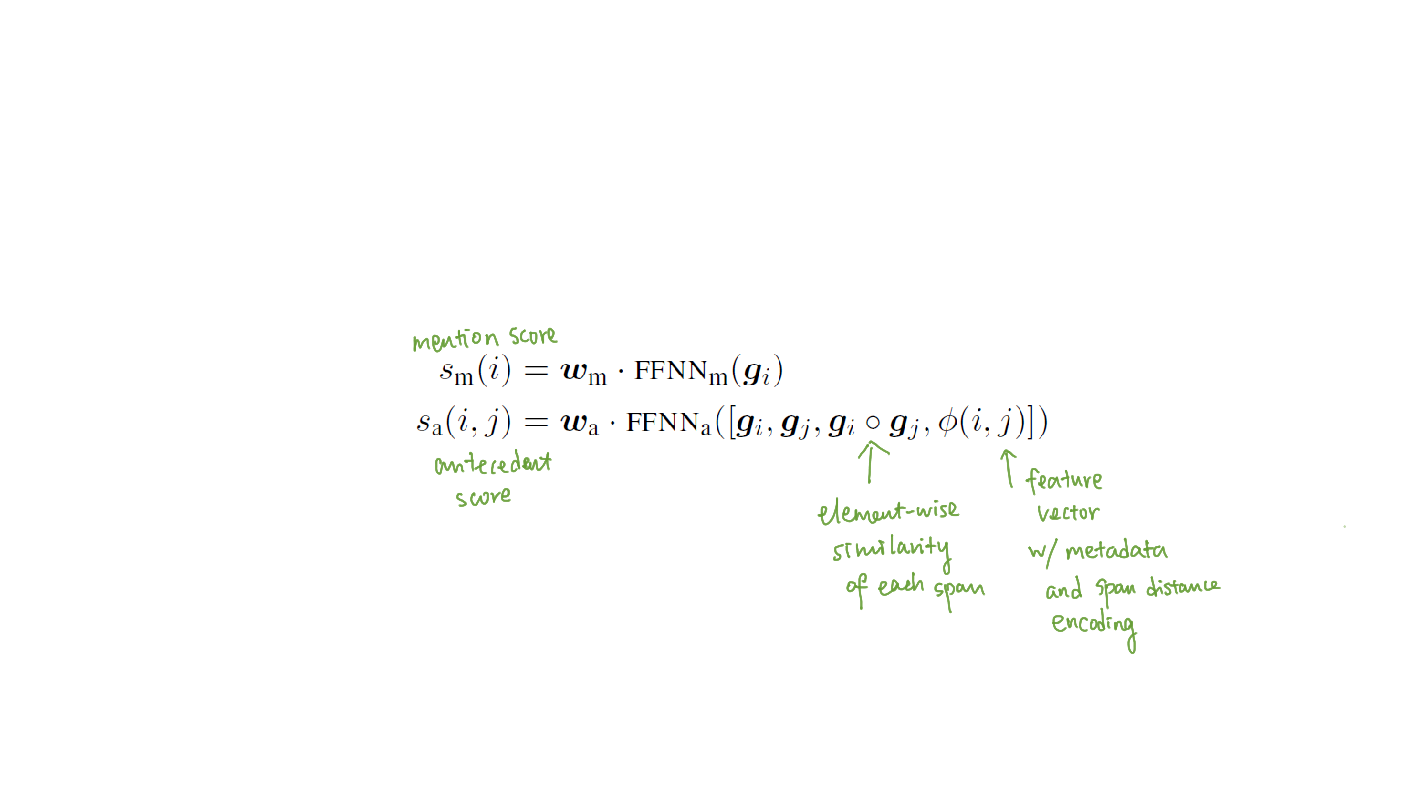 mention score
s_m(i) = w_m · FFNN_m(g_i)
s_a(i, j) = w_a · FFNN_a([g_i, g_j, g_i ∘ g_j, ϕ(i, j)])
antecedent
score
element-wise
similarity
of each span
feature
vector
w/ metadata
and span distance
encoding